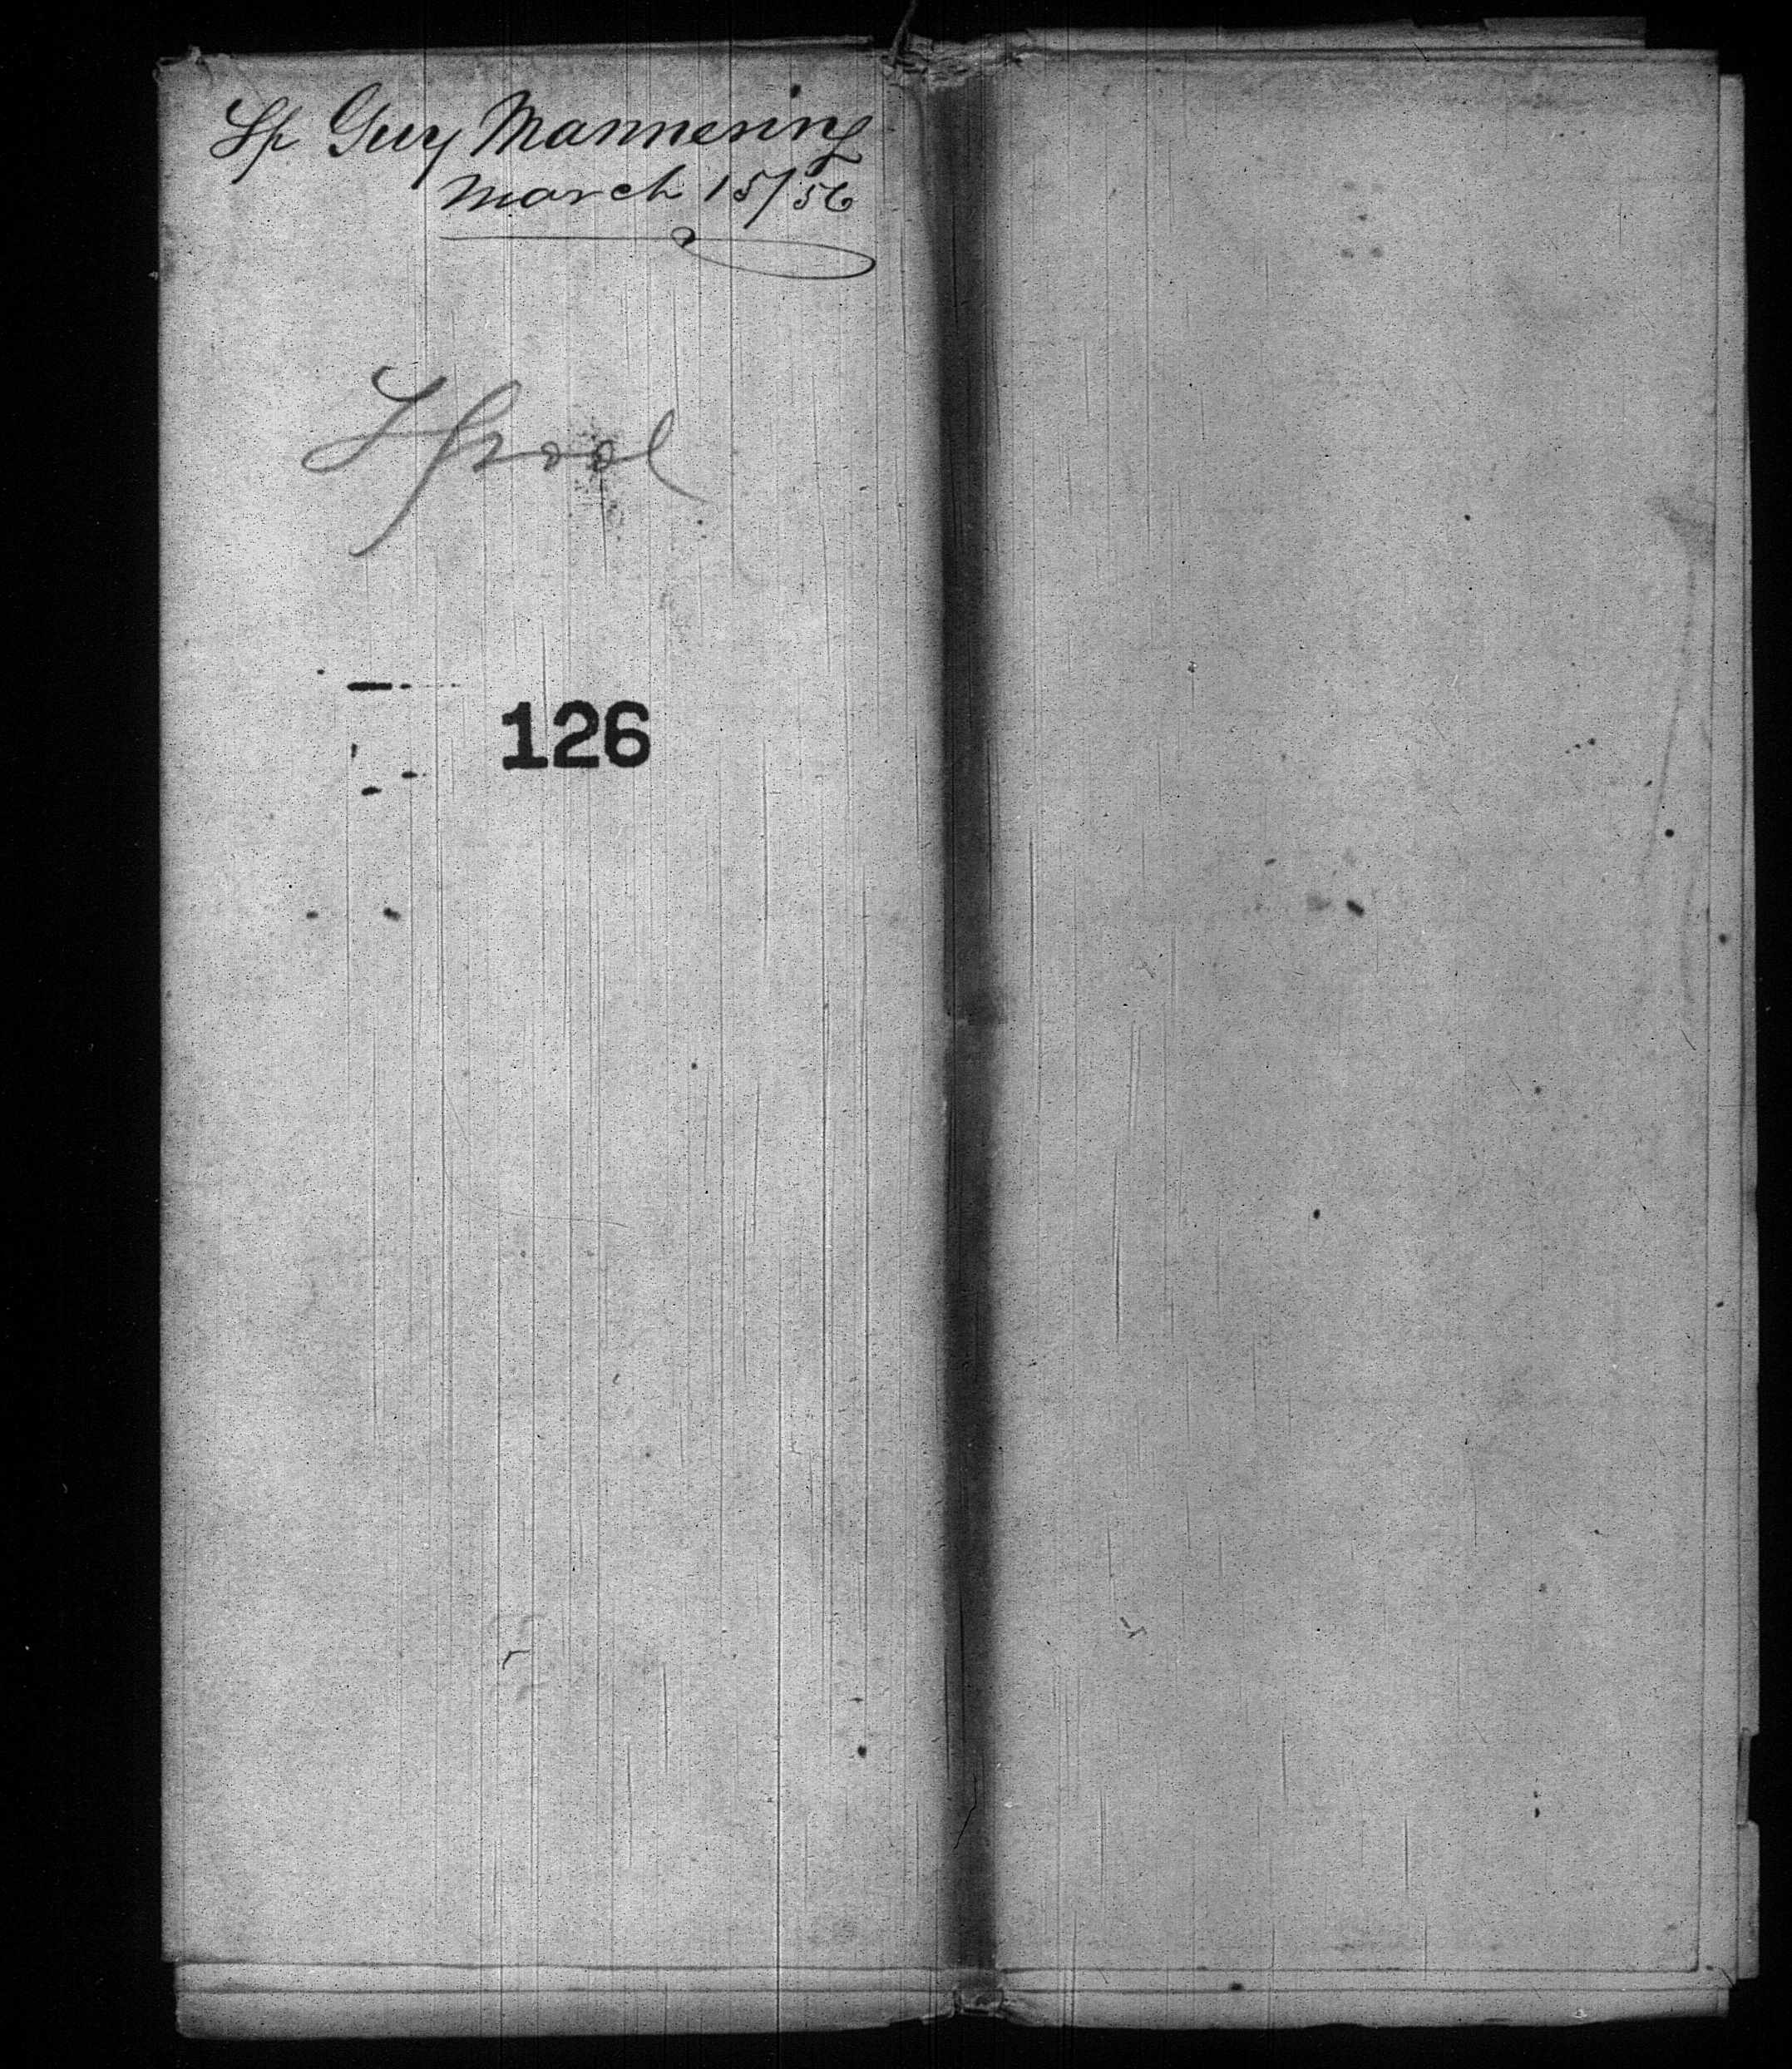 Sp Guy Mannering
March 15/56
Lpool
126